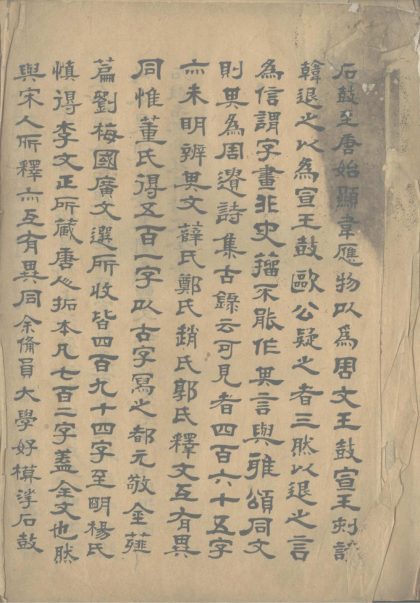 石鼓至唐始顯韋應物以爲周文王鼓宣王刻詩
韓退之以爲宣王鼓歐公疑之者三然以退之言
為信謂字畫非史籀不能作其言與雅頌同文
則其為周遺詩集古錄云可見者四百六十五字
亦未明辨其文薛氏鄭氏趙氏郭氏釋文互有異
同惟董氏得五百一字以古字寫之都元敬金薤
篇劉梅國廣文選所收皆四百九十四字至明楊氏
慎得李文正所藏唐人拓本凡七百二字蓋全文也然
與宋人所釋亦互有異同余備員大學好摸挲石鼓